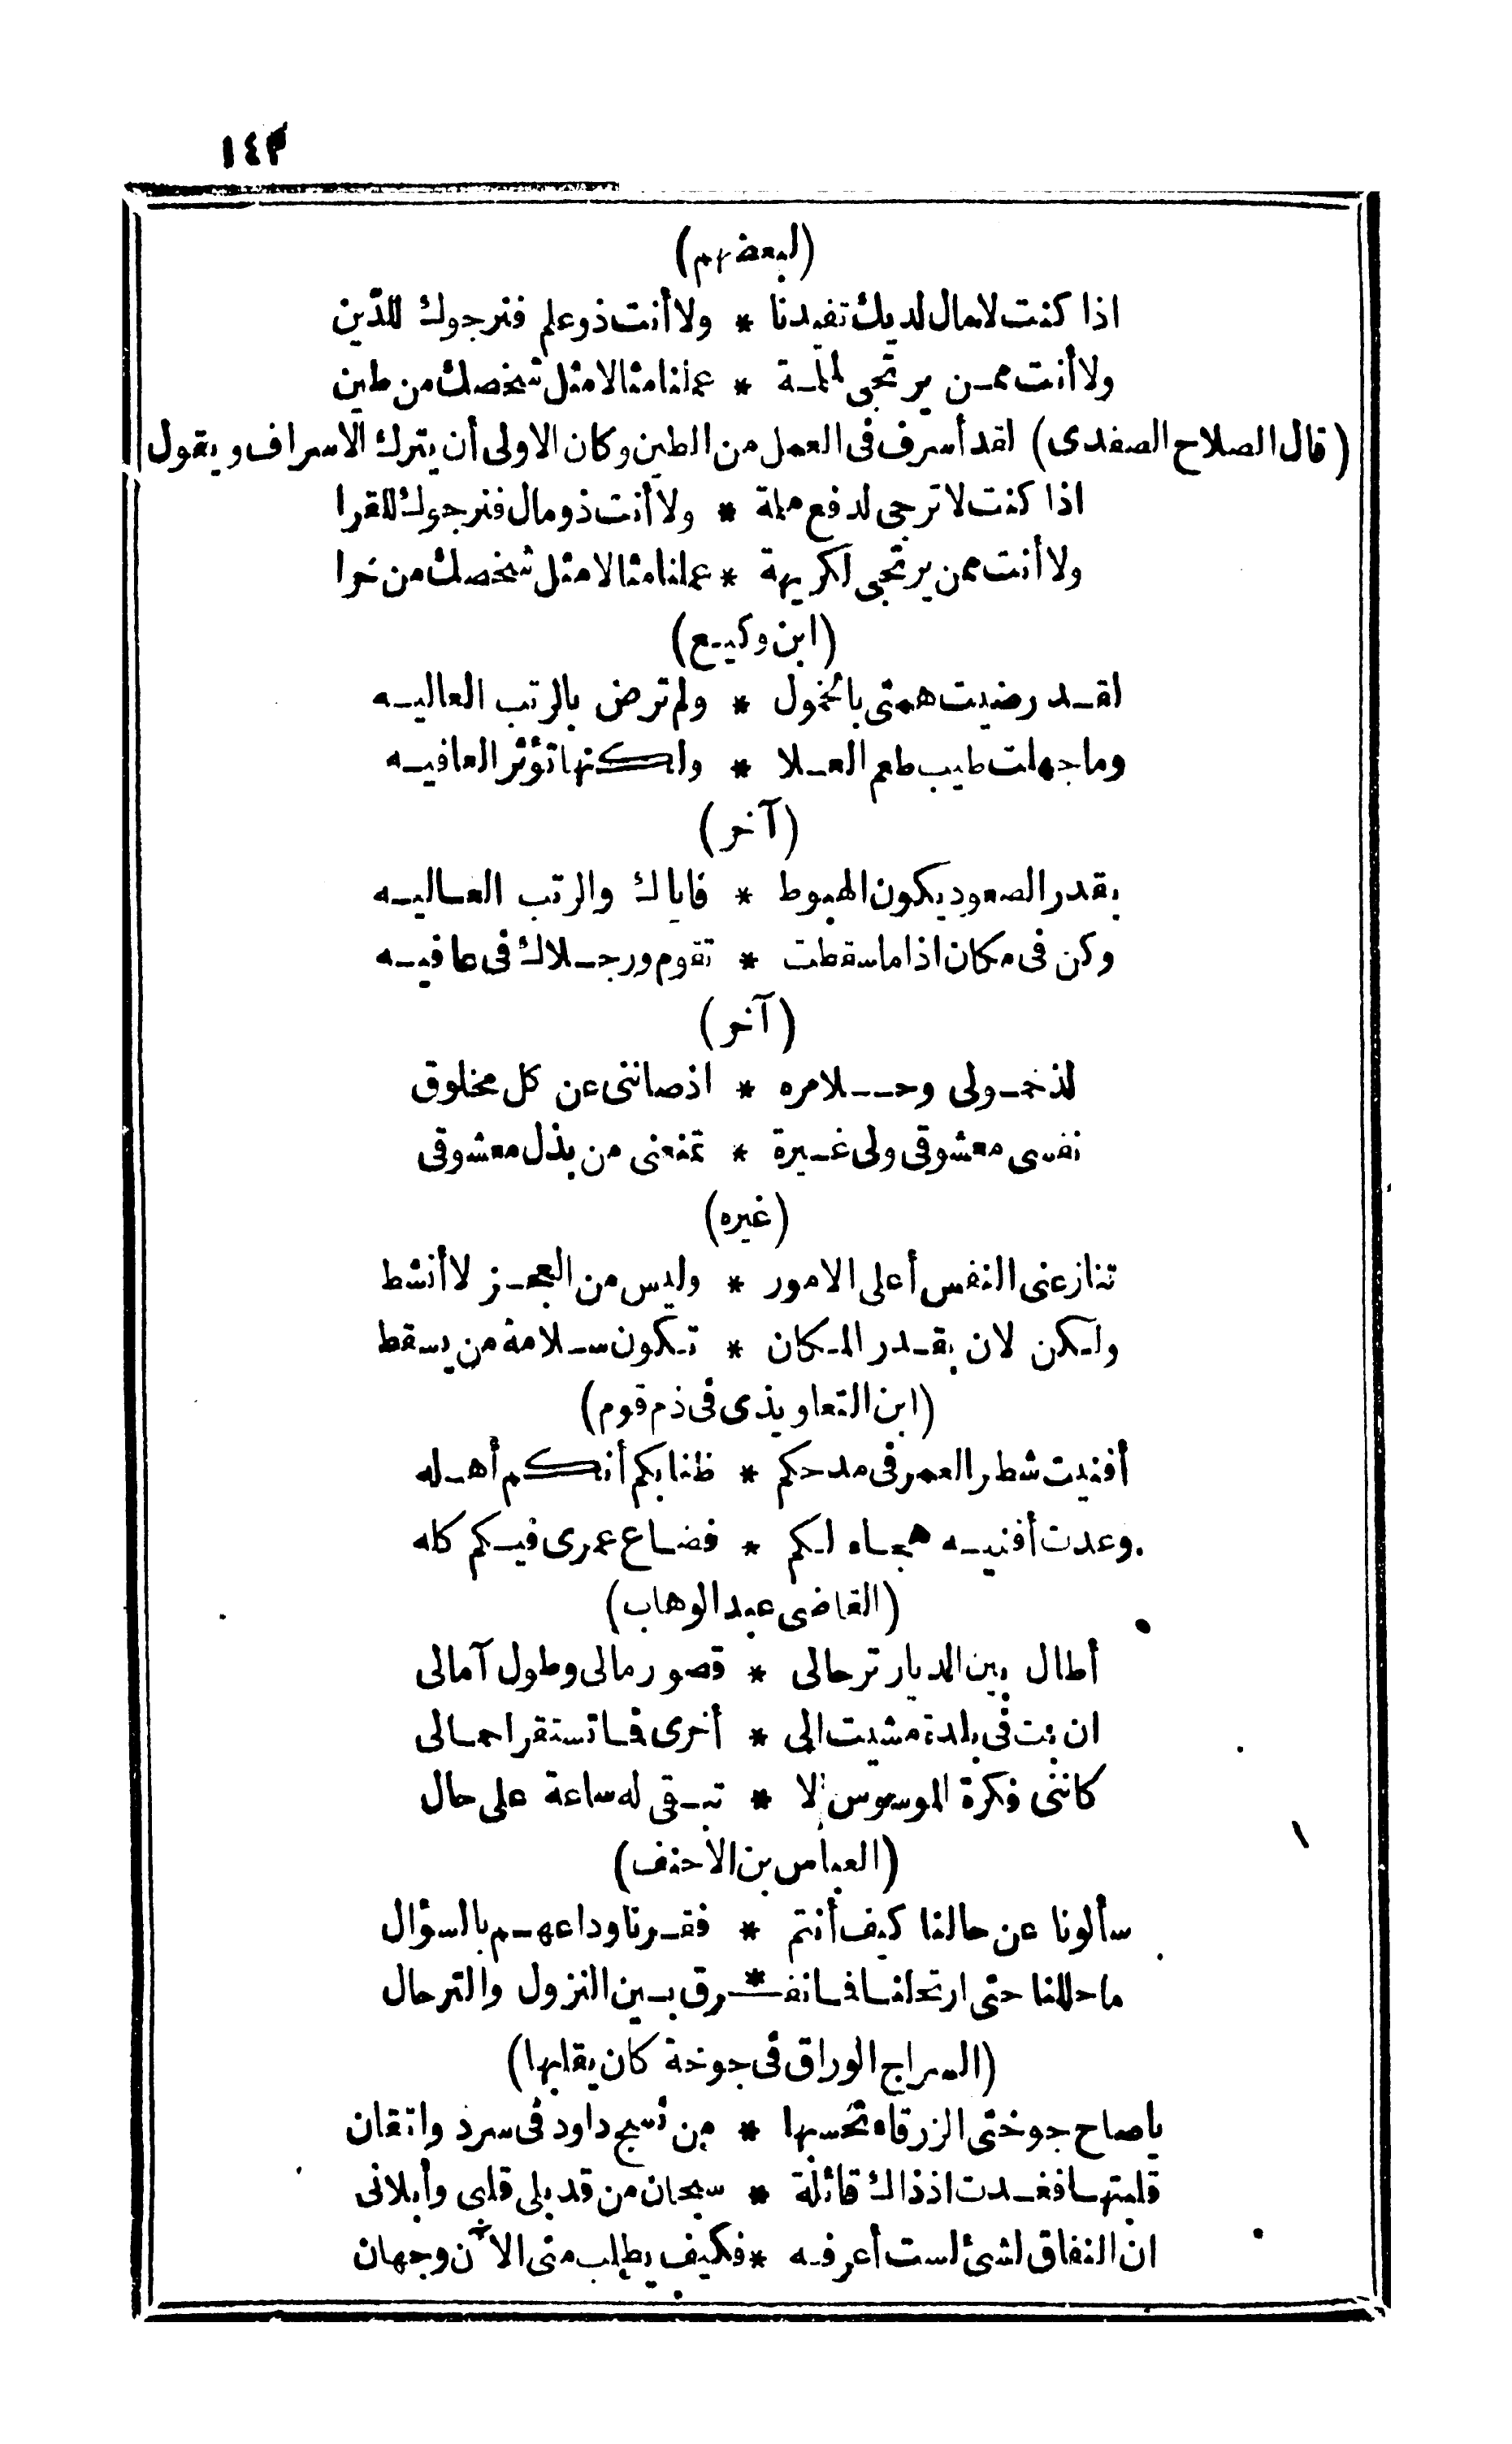 ١٤٣
(لبعضهم)
اذا كنت لامال لديك تفيدنا * ولا أنت ذو علم فنرجوك للدّين
ولا أنت ممن يرتجى لملمة * عملنا مثالا مثل شخصك من طين
(قال الصلاح الصفدى) لقد أسرف فى العمل من الطين وكان الاولى أن يترك الاسراف ويقول
اذا كنت لا ترجى لدفع ملمة * ولا أنت ذو مال فنرجوك للقرا
ولا أنت ممن يرتجى لكريهة * عملنا مثالا مثل شخصك من خرا
(ابن وكيع)
لقد رضيت همتى بالخمول * ولم ترض بالرتب العاليه
وما جهلت طيب طعم العلا * ولكنها تؤثر العافيه
(آخر)
بقدر الصعود يكون الهبوط * فاياك والرتب العاليه
وكن فى مكان اذا ما سقطت * تقوم ورجلاك فى عافيه
(آخر)
لذ خمولى وحلا مره * اذ صاننى عن كل مخلوق
نفسى معشوقى ولى غيرة * تمنعنى من بذل معشوقى
(غيره)
تنازعنى النفس أعلى الامور * وليس من العجز لا أنشط
ولكن لان بقدر المكان * تكون سلامة من يسقط
(ابن التعاويذى فى ذم قوم)
أفنيت شطر العمر فى مدحكم * ظنا بكم أنكم أهله
وعدت أفنيه هجاء لكم * فضاع عمرى فيكم كله
(القاضى عبد الوهاب)
أطال بين الديار ترحالى * قصور مالى وطول آمالى
ان بت فى بلدة مشيت الى * أخرى فما تستقر احمالى
كاننى فكرة الموسوس لا * تبقى له ساعة على حال
(العباس بن الأحنف)
سألونا عن حالنا كيف أنتم * فقرنا وداعهم بالسؤال
ما حللنا حتى ارتحلنا فما نفـ * رق بين النزول والترحال
(السراج الوراق فى جوخة كان يقلبها)
ياصاح جوختى الزرقاء تحسبها * من نسج داود فى سرد واتقان
قلبتها فغدت اذ ذاك قائلة * سبحان من قد بلى قلبى وأبلانى
ان النفاق لشئ لست أعرفه * فكيف يطلب منى الآن وجهان